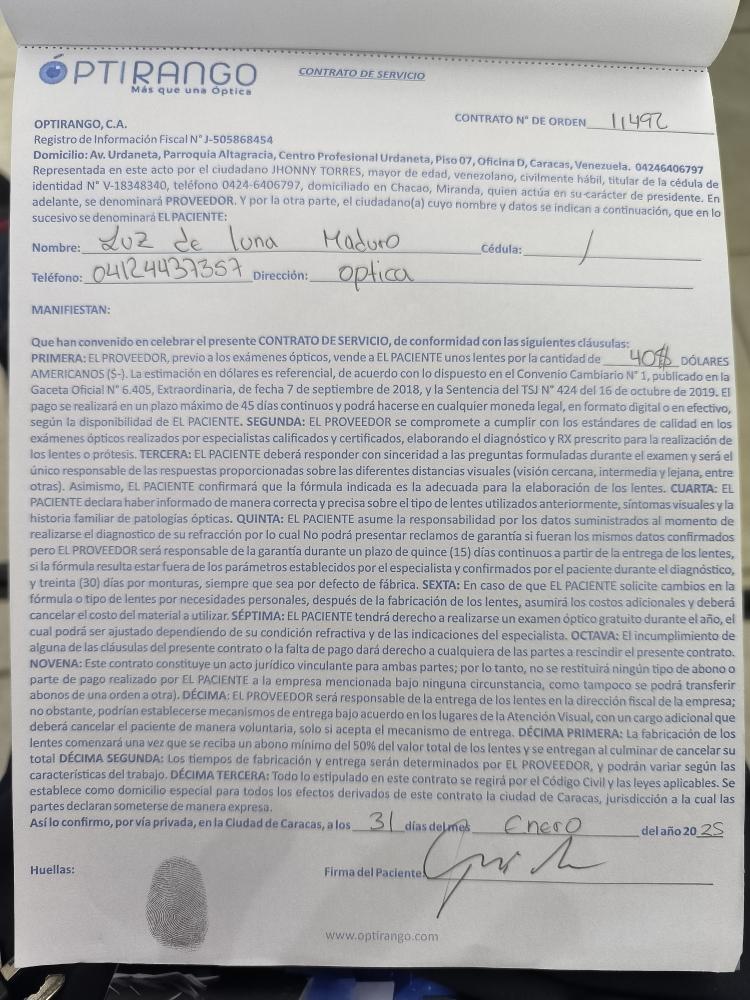 ÓPTIRANGO
Más que una Óptica
CONTRATO DE SERVICIO
CONTRATO N° DE ORDEN 11492
OPTIRANGO, C.A.
Registro de Información Fiscal N° J-505868454
Domicilio: Av. Urdaneta, Parroquia Altagracia, Centro Profesional Urdaneta, Piso 07, Oficina D, Caracas, Venezuela. 04246406797
Representada en este acto por el ciudadano JHONNY TORRES, mayor de edad, venezolano, civilmente hábil, titular de la cédula de
identidad N° V-18348340, teléfono 0424-6406797, domiciliado en Chacao, Miranda, quien actúa en su carácter de presidente. En
adelante, se denominará PROVEEDOR. Y por la otra parte, el ciudadano(a) cuyo nombre y datos se indican a continuación, que en lo
sucesivo se denominará EL PACIENTE:
Nombre: Luz de luna Maduro Cédula: /
Teléfono: 04124437357 Dirección: optica
MANIFIESTAN:
Que han convenido en celebrar el presente CONTRATO DE SERVICIO, de conformidad con las siguientes cláusulas:
PRIMERA: EL PROVEEDOR, previo a los exámenes ópticos, vende a EL PACIENTE unos lentes por la cantidad de 40$ DÓLARES
AMERICANOS ($-). La estimación en dólares es referencial, de acuerdo con lo dispuesto en el Convenio Cambiario N° 1, publicado en la
Gaceta Oficial N° 6.405, Extraordinaria, de fecha 7 de septiembre de 2018, y la Sentencia del TSJ N° 424 del 16 de octubre de 2019. El
pago se realizará en un plazo máximo de 45 días continuos y podrá hacerse en cualquier moneda legal, en formato digital o en efectivo,
según la disponibilidad de EL PACIENTE. SEGUNDA: EL PROVEEDOR se compromete a cumplir con los estándares de calidad en los
exámenes ópticos realizados por especialistas calificados y certificados, elaborando el diagnóstico y RX prescrito para la realización de
los lentes o prótesis. TERCERA: EL PACIENTE deberá responder con sinceridad a las preguntas formuladas durante el examen y será el
único responsable de las respuestas proporcionadas sobre las diferentes distancias visuales (visión cercana, intermedia y lejana, entre
otras). Asimismo, EL PACIENTE confirmará que la fórmula indicada es la adecuada para la elaboración de los lentes. CUARTA: EL
PACIENTE declara haber informado de manera correcta y precisa sobre el tipo de lentes utilizados anteriormente, síntomas visuales y la
historia familiar de patologías ópticas. QUINTA: EL PACIENTE asume la responsabilidad por los datos suministrados al momento de
realizarse el diagnostico de su refracción por lo cual No podrá presentar reclamos de garantía si fueran los mismos datos confirmados
pero EL PROVEEDOR será responsable de la garantía durante un plazo de quince (15) días continuos a partir de la entrega de los lentes,
si la fórmula resulta estar fuera de los parámetros establecidos por el especialista y confirmados por el paciente durante el diagnóstico,
y treinta (30) días por monturas, siempre que sea por defecto de fábrica. SEXTA: En caso de que EL PACIENTE solicite cambios en la
fórmula o tipo de lentes por necesidades personales, después de la fabricación de los lentes, asumirá los costos adicionales y deberá
cancelar el costo del material a utilizar. SÉPTIMA: EL PACIENTE tendrá derecho a realizarse un examen óptico gratuito durante el año, el
cual podrá ser ajustado dependiendo de su condición refractiva y de las indicaciones del especialista. OCTAVA: El incumplimiento de
alguna de las cláusulas del presente contrato o la falta de pago dará derecho a cualquiera de las partes a rescindir el presente contrato.
NOVENA: Este contrato constituye un acto jurídico vinculante para ambas partes; por lo tanto, no se restituirá ningún tipo de abono o
parte de pago realizado por EL PACIENTE a la empresa mencionada bajo ninguna circunstancia, como tampoco se podrá transferir
abonos de una orden a otra). DÉCIMA: EL PROVEEDOR será responsable de la entrega de los lentes en la dirección fiscal de la empresa;
no obstante, podrían establecerse mecanismos de entrega bajo acuerdo en los lugares de la Atención Visual, con un cargo adicional que
deberá cancelar el paciente de manera voluntaria, solo si acepta el mecanismo de entrega. DÉCIMA PRIMERA: La fabricación de los
lentes comenzará una vez que se reciba un abono mínimo del 50% del valor total de los lentes y se entregan al culminar de cancelar su
total DÉCIMA SEGUNDA: Los tiempos de fabricación y entrega serán determinados por EL PROVEEDOR, y podrán variar según las
características del trabajo. DÉCIMA TERCERA: Todo lo estipulado en este contrato se regirá por el Código Civil y las leyes aplicables. Se
establece como domicilio especial para todos los efectos derivados de este contrato la ciudad de Caracas, jurisdicción a la cual las
partes declaran someterse de manera expresa.
Así lo confirmo, por vía privada, en la Ciudad de Caracas, a los 31 días del mes Enero del año 2025
Huellas:
Firma del Paciente:
www.optirango.com